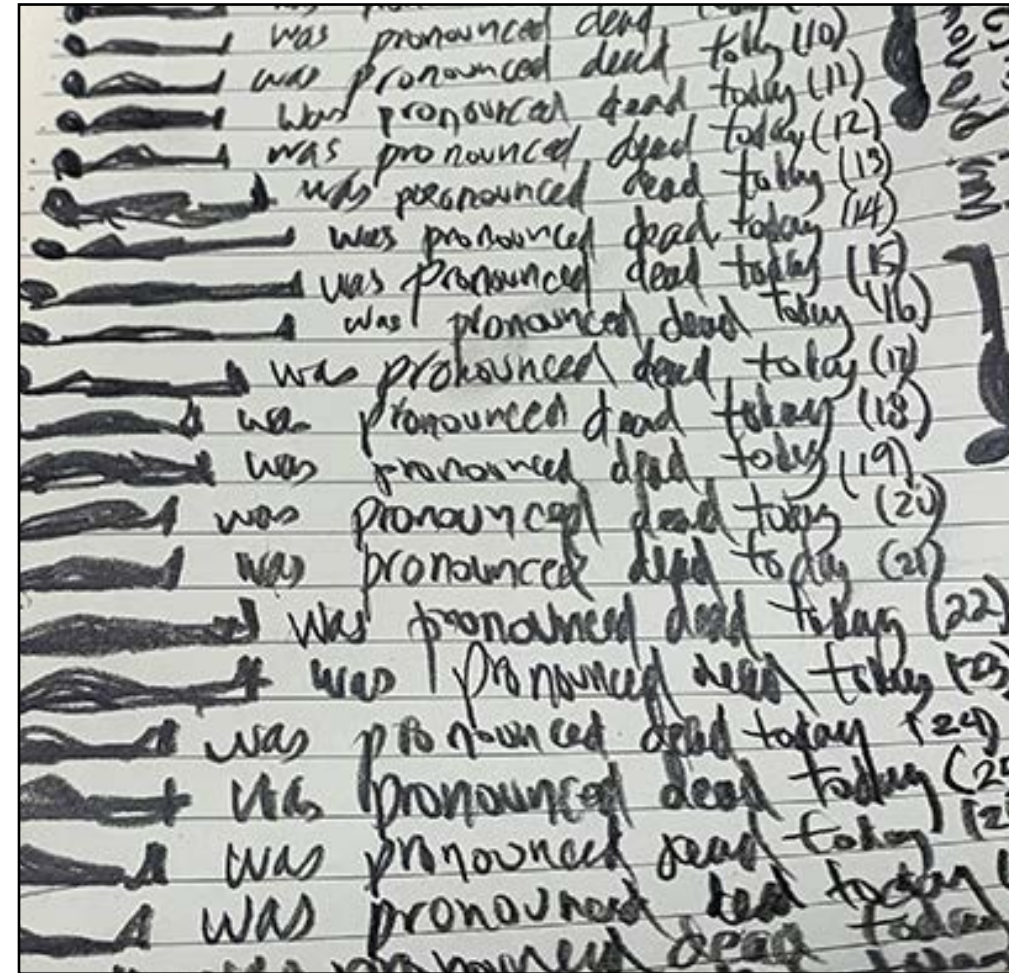 was pronounced dead
was pronounced dead today (10)
was pronounced dead today (11)
was pronounced dead today (12)
was pronounced dead today (13)
was pronounced dead today (14)
was pronounced dead today (15)
was pronounced dead today (16)
was pronounced dead today (17)
was pronounced dead today (18)
was pronounced dead today (19)
was pronounced dead today (20)
was pronounced dead today (21)
was pronounced dead today (22)
was pronounced dead today (23)
was pronounced dead today (24)
was pronounced dead today
was pronounced dead today
was pronounced dead today
pronounced dead today